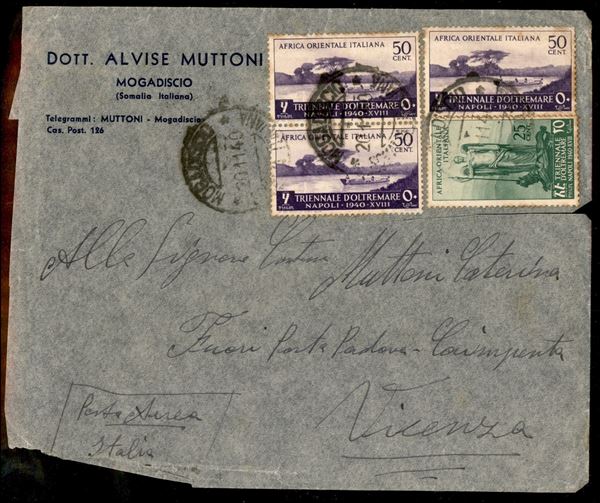 DOTT. ALVISE MUTTONI
MOGADISCIO
(Somalia Italiana)
Telegrammi: MUTTONI - Mogadiscio
Cas. Post. 126
AFRICA ORIENTALE ITALIANA 50 CENT.
TRIENNALE D'OLTREMARE
NAPOLI - 1940 - XVIII
AFRICA ORIENTALE ITALIANA 50 CENT.
TRIENNALE D'OLTREMARE
NAPOLI - 1940 - XVIII
50 CENT.
TRIENNALE D'OLTREMARE
NAPOLI - 1940 - XVIII
AFRICA ORIENTALE ITALIANA
25 CENT.
TRIENNALE D'OLTREMARE
Alla Signora Muttoni Caterina
Fuori Porta Padova - Caimpenta
Vicenza
Posta Aerea
Italia